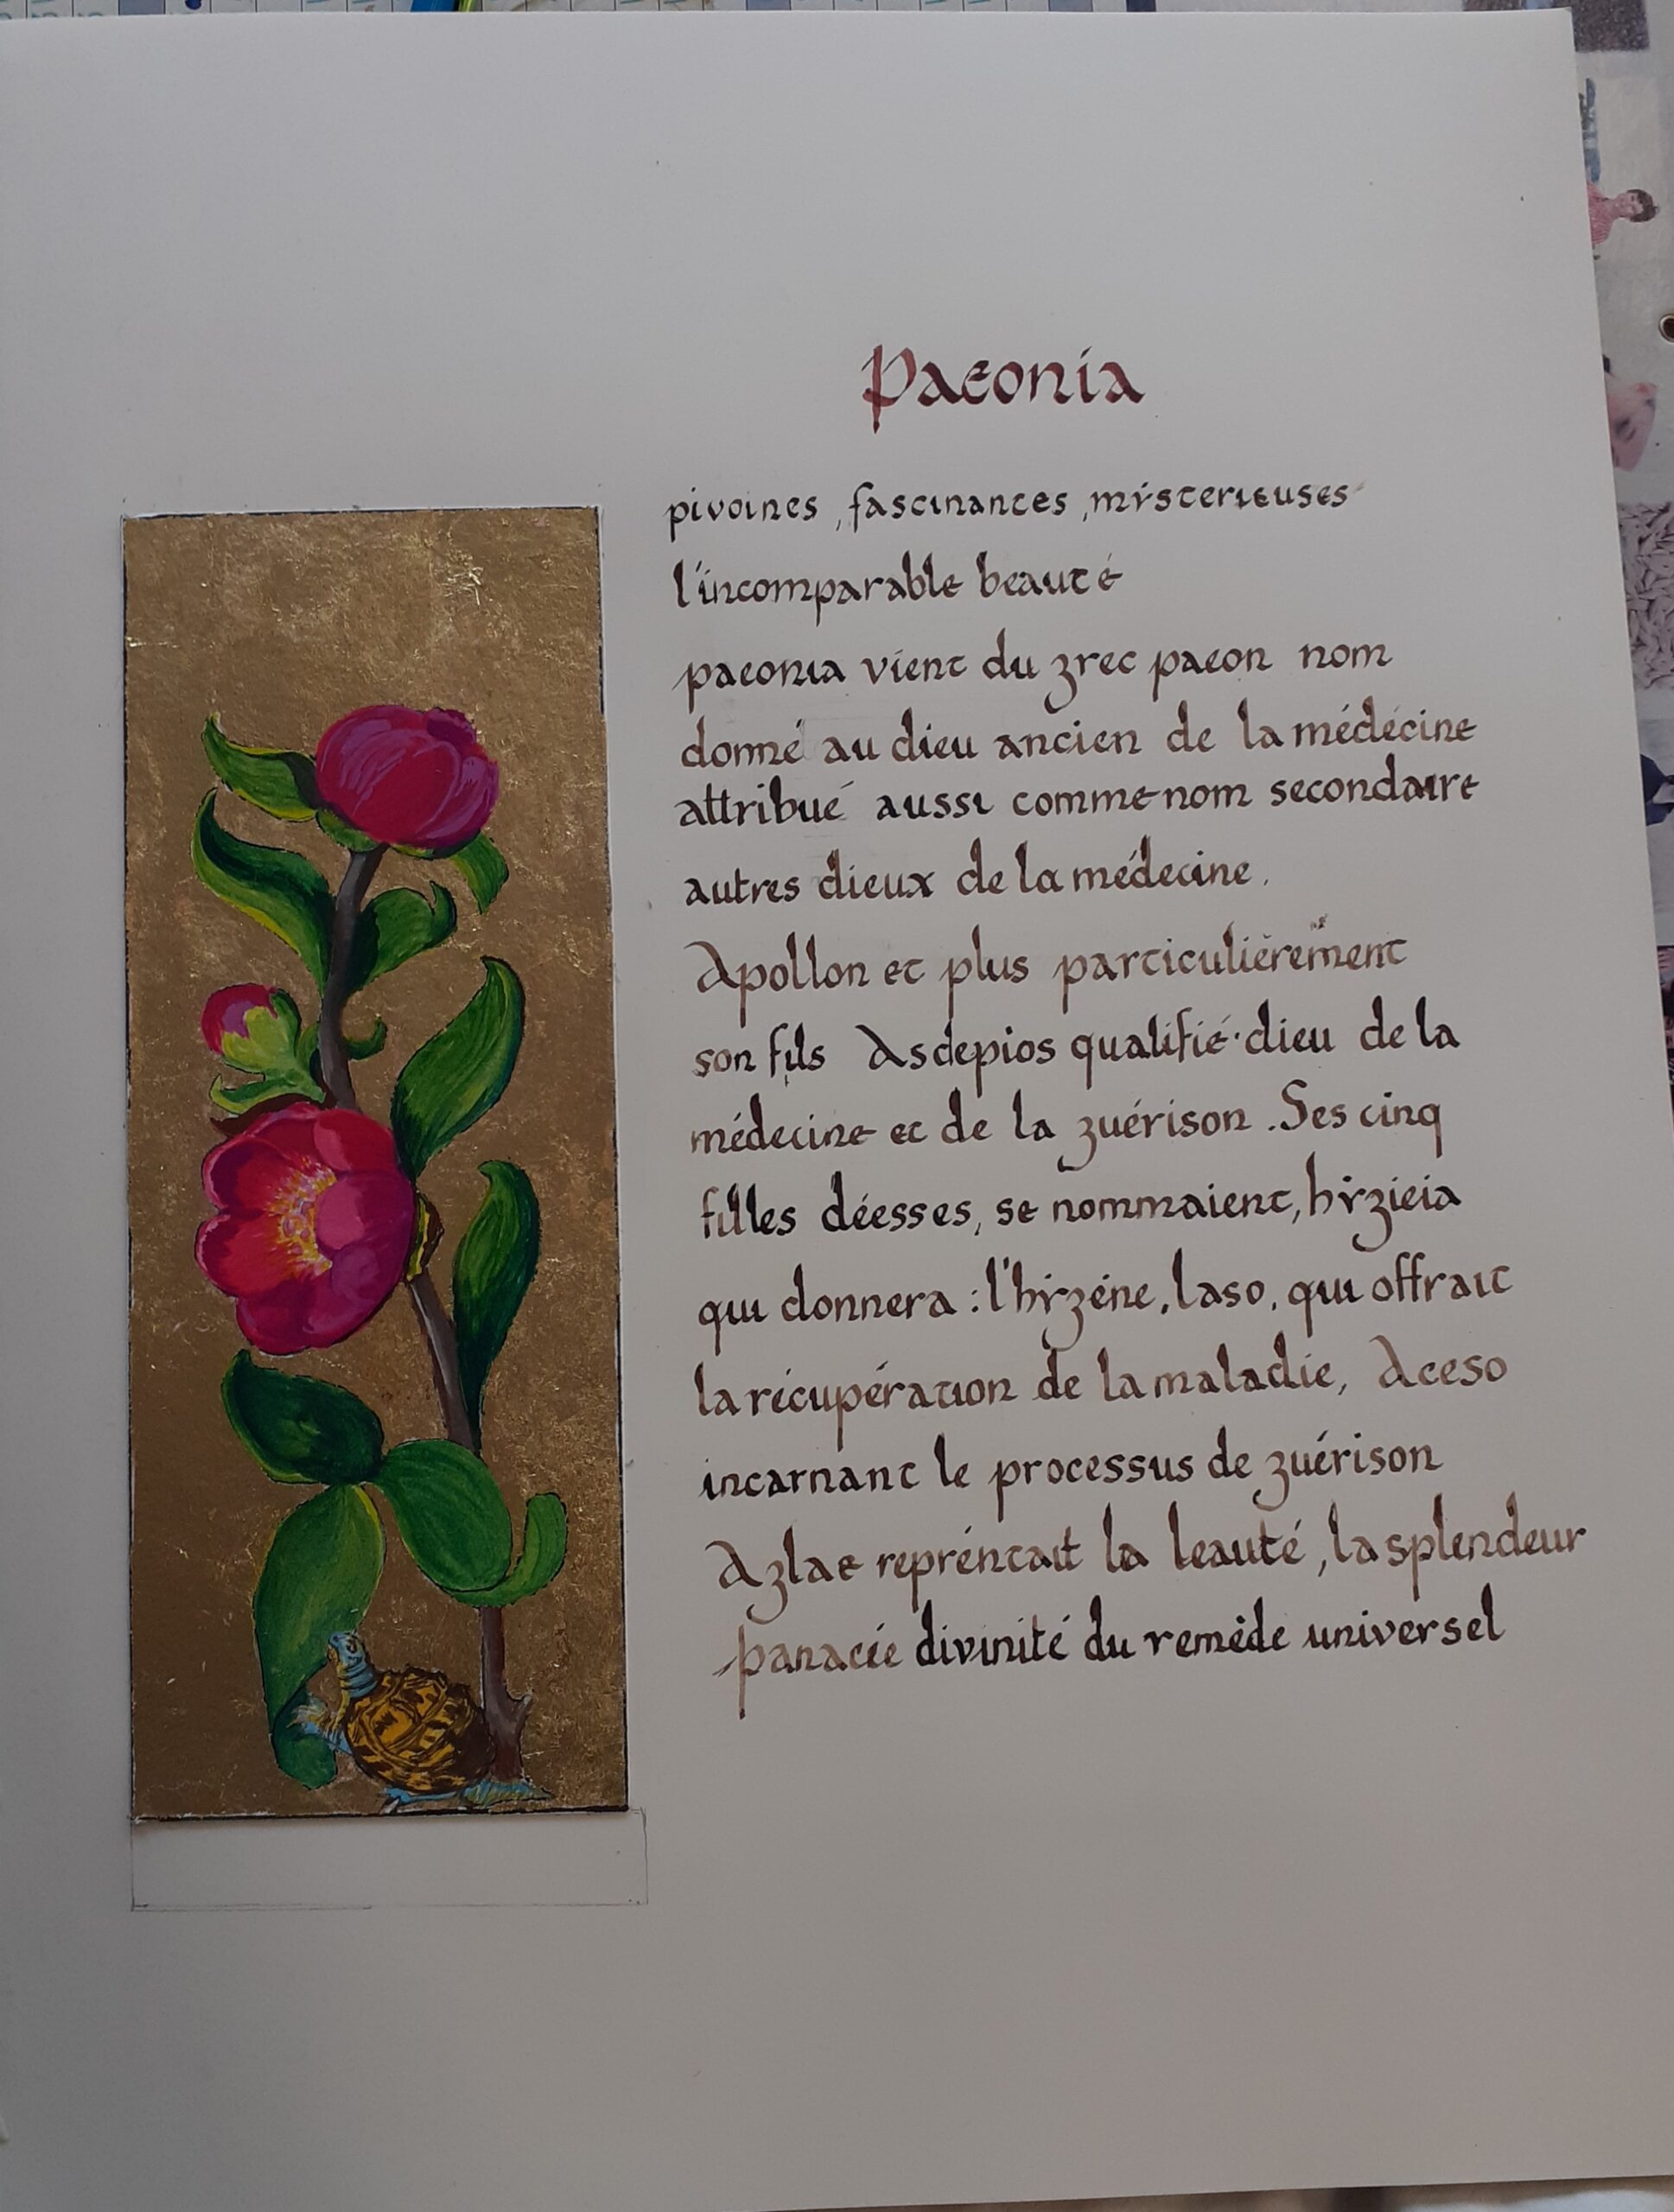 Paeonia
pivoines, fascinantes, mystérieuses
l'incomparable beauté
paeonia vient du grec paeon nom
donné au dieu ancien de la médécine
attribué aussi comme nom secondaire
autres dieux de la médecine.
Apollon et plus particulièrement
son fils Asclepios qualifié dieu de la
médecine et de la guérison. Ses cinq
filles déesses, se nommaient, hygieia
qui donnera : l'hygéne, Iaso, qui offrait
la récupération de la maladie, Aceso
incarnant le processus de guérison
Aglae repréntait la beauté, la splendeur
panacée divinité du remède universel